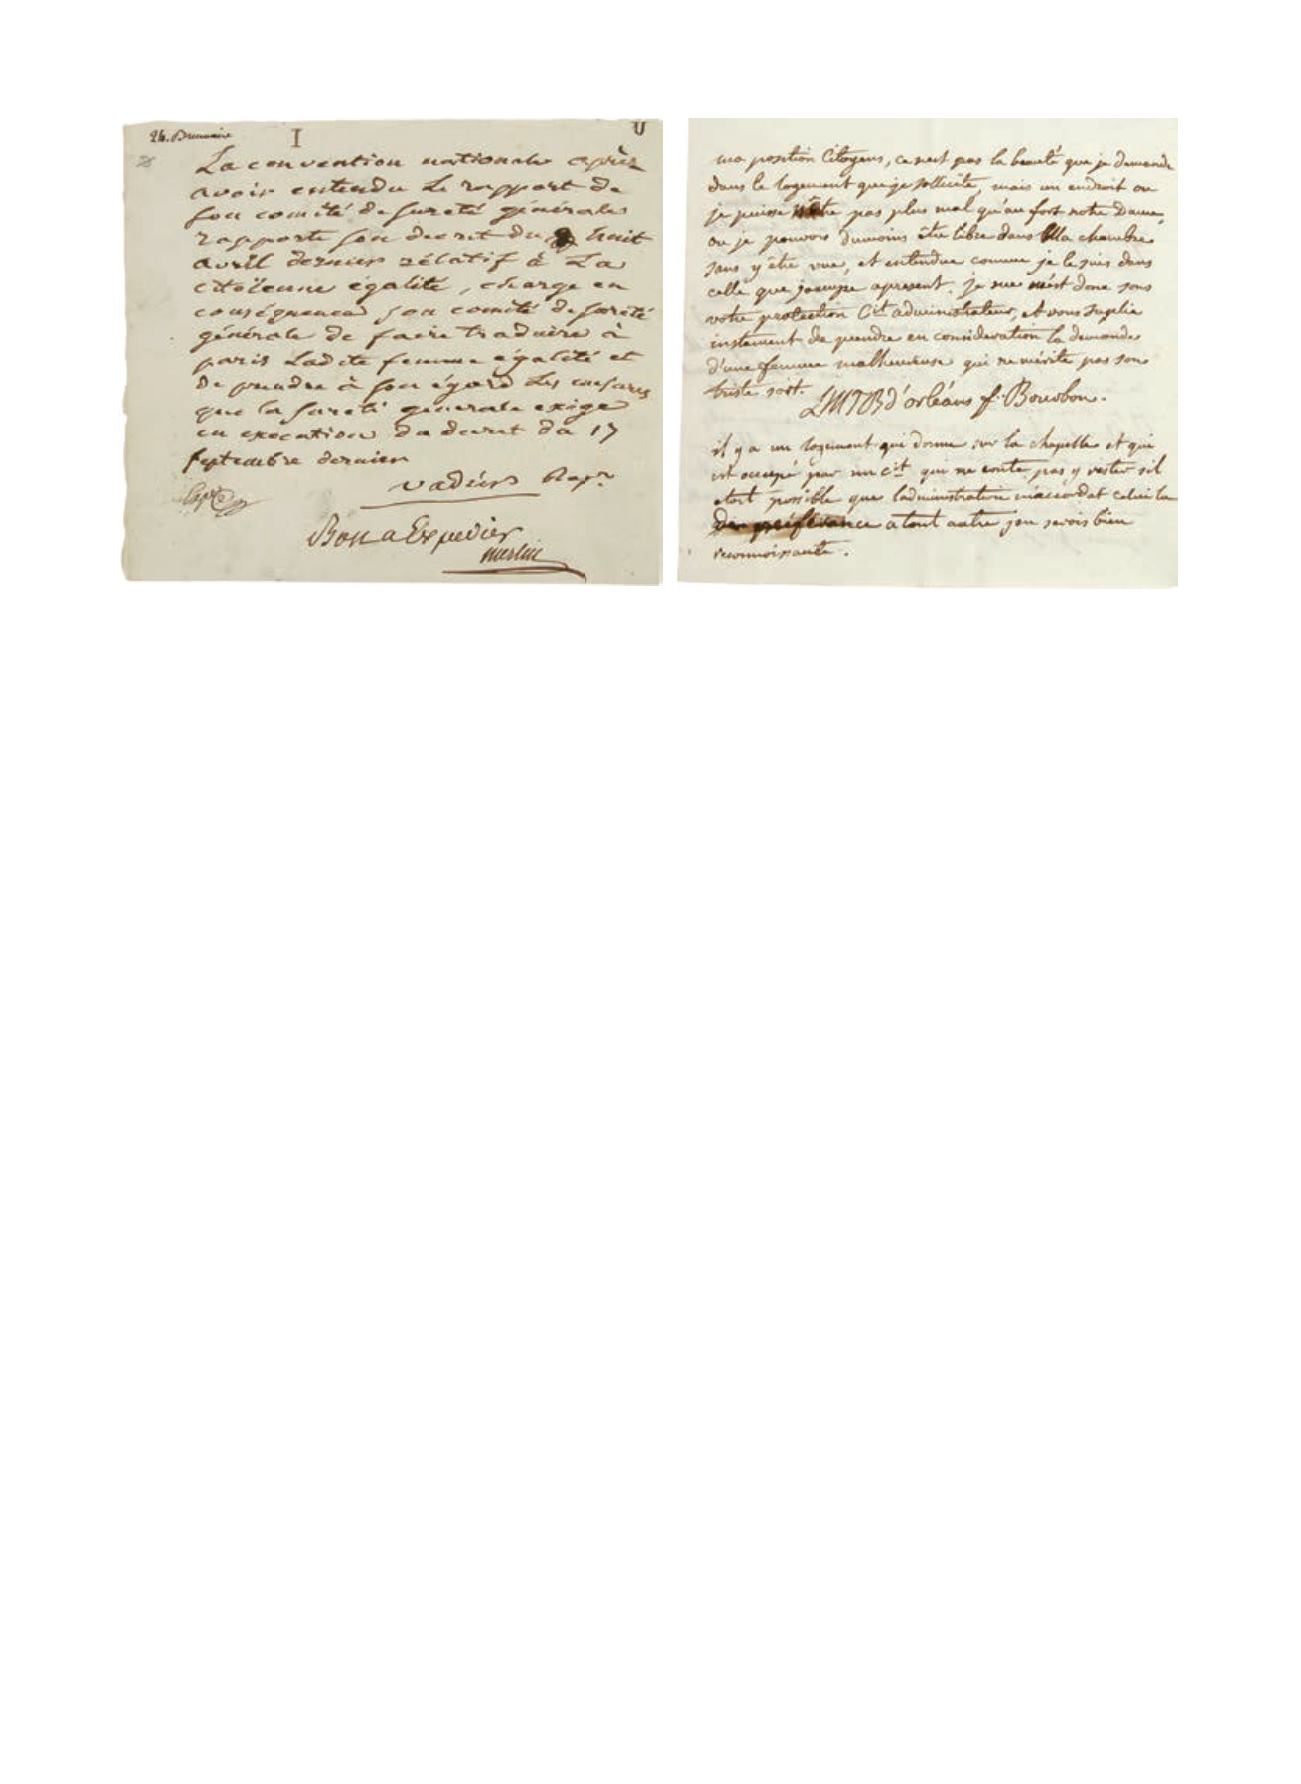 24. Brumaire
I
La convention nationale après
avoir entendu Le rapport de
son comité de sureté générale
rapporte son decret du huit
avril dernier rélatif à La
citoïenne égalité, charge en
conséquence son comité de sureté
générale de faire traduire à
paris Ladite femme égalité et
de prendre à son égard Les mesures
que la sureté générale exige
en execution du decret du 17
septembre dernier
vadier Rapr.
Bon a Expedier
merlin
ma position Citoyens, ce nest pas la beauté que je demande
dans le logement que je sollicite, mais un endroit ou
je puisse nêtre pas plus mal qu'au fort notre Dame,
ou je pouvois dumoins être libre dans la chambre
sans y être vue, et entendue comme je le suis dans
celle que joccupe apresent. je me mêt donc sous
votre protection Cit administrateurs, et vous suplie
instament de prendre en consideration la demande
d'une femme malheureuse qui ne mérite pas son
triste sort.
LMTB d'orléans f. Bourbon.
il y a un logement qui donne sur la chapelle et qui
est occupé par un cit qui ne conte pas y rester sil
etoit possible que ladministration maccordat celui la
de préférance a tout autre jen serois bien
reconnoissante.